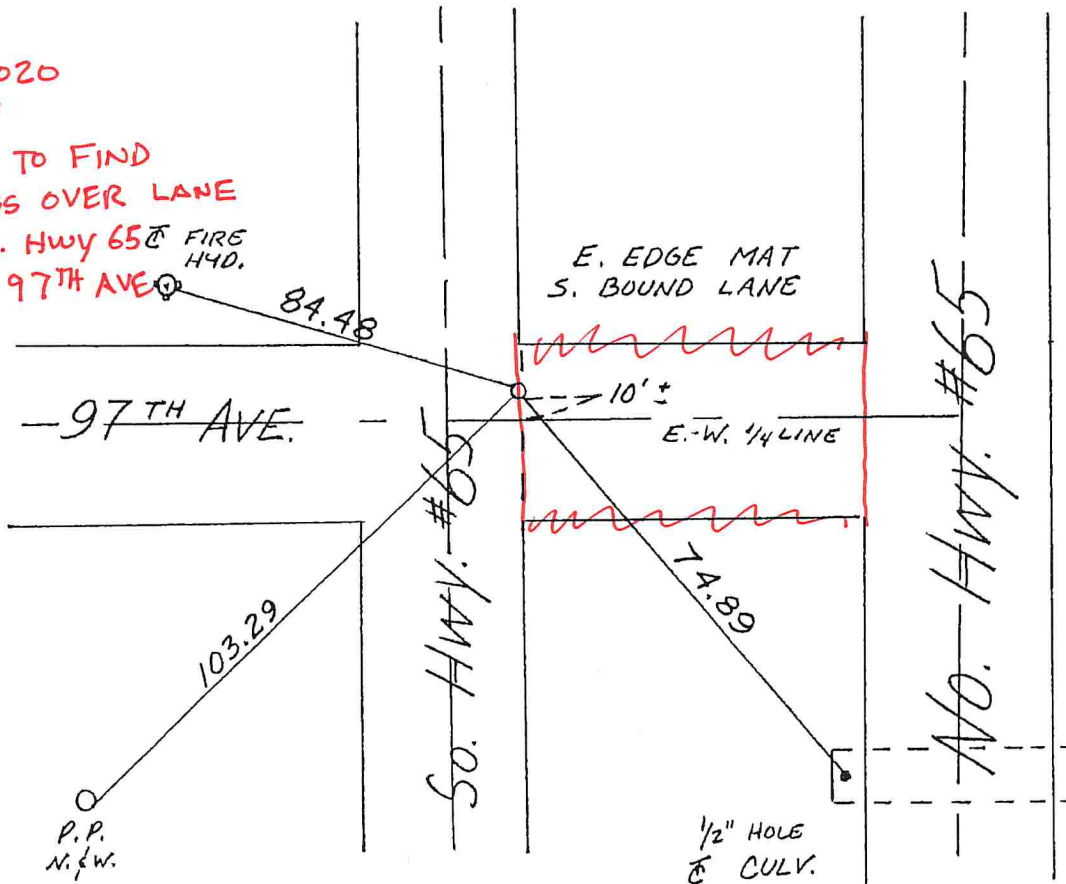 020
TO FIND
S OVER LANE
. HWY 65
97TH AVE
℄ FIRE
HYD.
84.48
E. EDGE MAT
S. BOUND LANE
10' ±
97TH AVE.
E.-W. 1/4 LINE
So. HWY. #65
No. HWY. #65
74.89
103.29
P.P.
N. & W.
1/2" HOLE
℄ CULV.